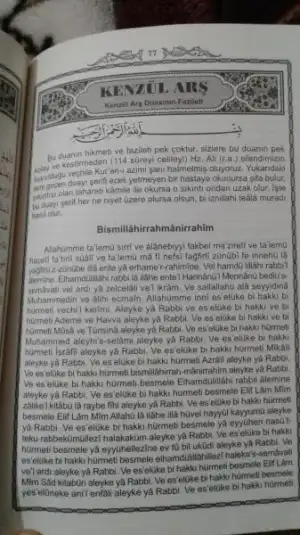 77
KENZÜL ARŞ
Kenzül Arş Duasının Fazileti
بِسْمِ اللهِ الرَّحْمٰنِ الرَّحِيمِ
Bu duanın hikmeti ve fazileti pek çoktur, sizlere bu duanın pek
kolay ve kestirmeden (114 sûreyi celileyi) Hz. Ali (r.a.) efendimizin
okuduğu veçhile Kur'an-ı azîmi şanı hatmetmiş oluyoruz. Yukarıdaki
ismi geçen duayı şerifi eceli yetmeyen bir hastaya okunursa şifa bulur,
itikatla okursa o sıkıntı ondan uzak olur. İşte
bu duayı şerif her ne niyet üzere olursa olsun, bi iznillahi teâlâ muradı
hasıl olur.
Bismillâhirrahmânirrahîm
Allahümme ta'lemü sırrî ve alânebiyyî fakbel ma'zireti ve ta'lemü
hâcetî fa'tınî süâlî ve ta'lemü mâ fî nefsî fağfirlî zünûbî fe innehü lâ
yağfiru'z-zünûbe illâ ente yâ erhame'r-rahimîne. Vel hamdü lillâhi rabbi'l
âlemîne. Elhamdülillâhi rabbi lâ ilâhe ente'l Hannânü'l Mennânü bedîu's-
semâvâti vel ardı yâ zelcelâli ve'l ikrâm. Ve sallallahu alâ seyyidinâ
Muhammedin ve âlihi ecmaîn. Allahümme innî es'elüke bi hakkı bi
hürmeti vechi'l kerîmi. Aleyke yâ Rabbi ve es'elüke bi hakkı ve bi
hürmeti Ademe ve Havva aleyke yâ Rabbi. Ve es'elüke bi hakkı ve bi
hürmeti Mûsâ ve Tûrisinâ aleyke yâ Rabbi. Ve es'elüke bi hakkı hürmeti
Muhammed aleyhi's-selâme aleyke yâ Rabbi. Ve es'elüke bi hakkı
hürmeti İsrâfîl aleyke yâ Rabbi. Ve es'elüke bi hakkı hürmeti Mikâîl
aleyke yâ Rabbi. Ve es'elüke bi hakkı hürmeti Azrâîl aleyke yâ Rabbi.
Ve es'elüke bi hakkı hürmeti bismillâhirrah-mânirrahîm aleyke yâ Rabbi.
Ve es'elüke bi hakkı hürmeti besmele Elhamdülillâhi rabbil âlemîne
aleyke yâ Rabbi. Ve es'elüke bi hakkı hürmeti besmele Elif Lâm Mîm
zâlike'l kitâbü lâ raybe fîhi aleyke yâ Rabbi. Ve es'elüke bi hakkı hürmeti
besmele Elif Lâm Mîm Allahü lâ ilâhe illâ hüvel hayyül kayyumü aleyke
yâ Rabbi. Ve es'elüke bi hakkı hürmeti besmele yâ eyyühen nasü't-
teku rabbekümüllezî halakaküm aleyke yâ Rabbi. Ve es'elüke bi hakkı
hürmeti besmele yâ eyyühellezîne ev fû bil ukûdi aleyke yâ Rabbi. Ve
es'elüke bi hakkı hürmeti besmele elhamdülillâhillezî haleka's-semâvati
ve'l ardı aleyke yâ Rabbi. Ve es'elüke bi hakkı hürmeti besmele Elif Lâm
Mîm Sâd kitâbün aleyke yâ Rabbi. Ve es'elüke bi hakkı hürmeti besmele
yes'elûneke ani'l enfâli aleyke yâ Rabbi. Ve es'elüke bi hakkı hürmeti